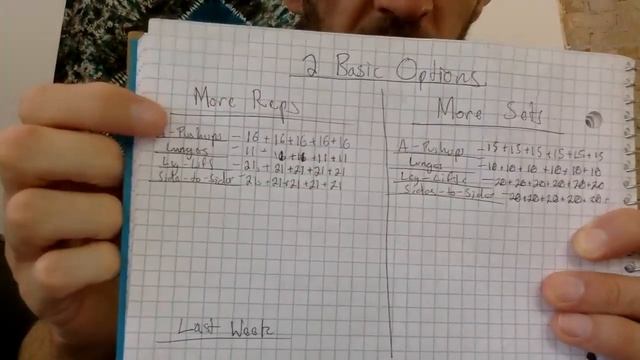 2 Basic Options
More Reps
A-Pushups - 16 + 16 + 16 + 16 + 16
Lunges - 11 + 11 + 11 + 11 + 11
Leg-Lifts - 21 + 21 + 21 + 21 + 21
Side-to-Side - 21 + 21 + 21 + 21 + 21
Last Week
More Sets
A-Pushups - 15 + 15 + 15 + 15 + 15 + 15
Lunges - 10 + 10 + 10 + 10 + 10 + 10
Leg-Lifts - 20 + 20 + 20 + 20 + 20 + 20
Side-to-Side - 20 + 20 + 20 + 20 + 20 +